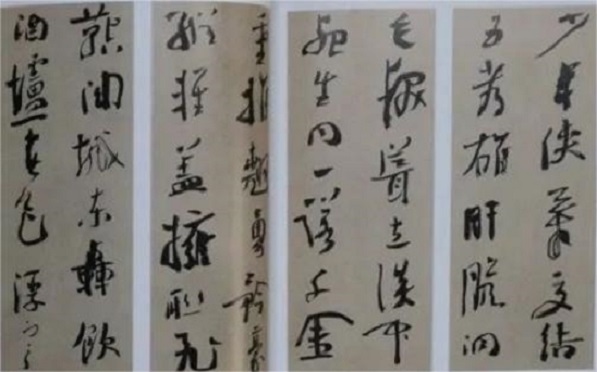 少年俠氣交結
五都雄肝膽洞
毛髮聳立談中
死生同一諾千金
重推翹勇矜豪
縱輕蓋擁聯飛
鞚鬥城東轟飲
酒壚春色浮